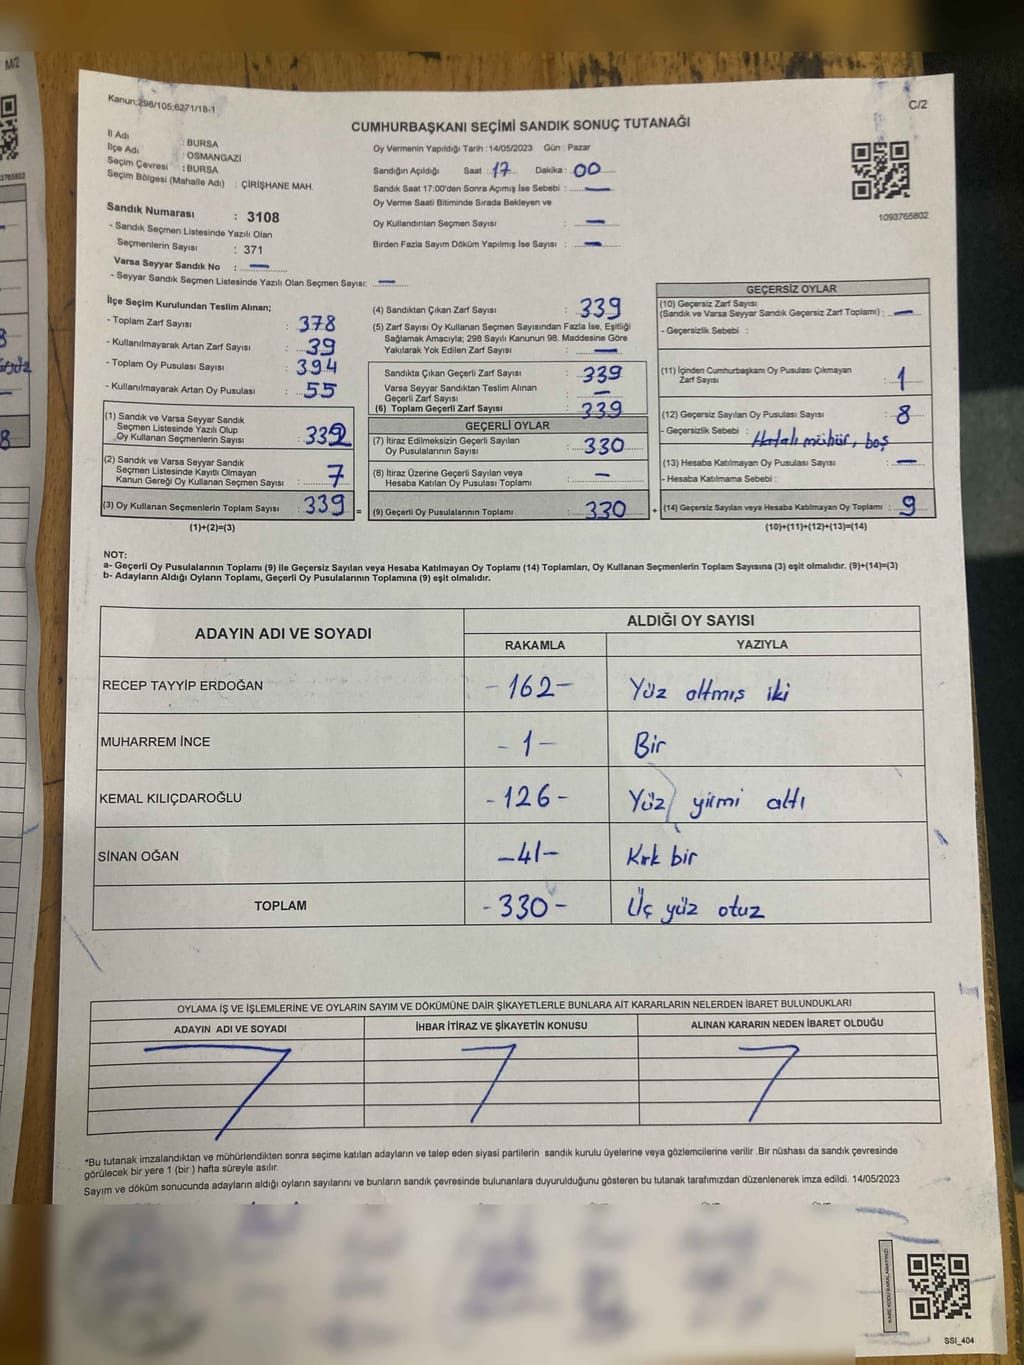 M/2
Kanun;298/105;6271/18-1
C/2
CUMHURBAŞKANI SEÇİMİ SANDIK SONUÇ TUTANAĞI
İl Adı : BURSA
İlçe Adı : OSMANGAZİ
Seçim Çevresi : BURSA
Seçim Bölgesi (Mahalle Adı) : ÇİRİŞHANE MAH.
Sandık Numarası : 3108
- Sandık Seçmen Listesinde Yazılı Olan
Seçmenlerin Sayısı : 371
Varsa Seyyar Sandık No : —
- Seyyar Sandık Seçmen Listesinde Yazılı Olan Seçmen Sayısı: —
Oy Vermenin Yapıldığı Tarih : 14/05/2023 Gün : Pazar
Sandığın Açıldığı Saat : 17 Dakika : 00
Sandık Saat 17:00'den Sonra Açımış İse Sebebi : —
Oy Verme Saati Bitiminde Sırada Bekleyen ve
Oy Kullandırılan Seçmen Sayısı : —
Birden Fazla Sayım Döküm Yapılmış İse Sayısı : —
1093765802
İlçe Seçim Kurulundan Teslim Alınan;
- Toplam Zarf Sayısı : 378
- Kullanılmayarak Artan Zarf Sayısı : 39
- Toplam Oy Pusulası Sayısı : 394
- Kullanılmayarak Artan Oy Pusulası : 55
(1) Sandık ve Varsa Seyyar Sandık
Seçmen Listesinde Yazılı Olup
Oy Kullanan Seçmenlerin Sayısı : 332
(2) Sandık ve Varsa Seyyar Sandık
Seçmen Listesinde Kayıtlı Olmayan
Kanun Gereği Oy Kullanan Seçmen Sayısı : 7
(3) Oy Kullanan Seçmenlerin Toplam Sayısı : 339
(1)+(2)=(3)
(4) Sandıktan Çıkan Zarf Sayısı : 339
(5) Zarf Sayısı Oy Kullanan Seçmen Sayısından Fazla İse, Eşitliği
Sağlamak Amacıyla; 298 Sayılı Kanunun 98. Maddesine Göre
Yakılarak Yok Edilen Zarf Sayısı : —
Sandıkta Çıkan Geçerli Zarf Sayısı : 339
Varsa Seyyar Sandıktan Teslim Alınan
Geçerli Zarf Sayısı : —
(6) Toplam Geçerli Zarf Sayısı : 339
GEÇERLİ OYLAR
(7) İtiraz Edilmeksizin Geçerli Sayılan
Oy Pusulalarının Sayısı : 330
(8) İtiraz Üzerine Geçerli Sayılan veya
Hesaba Katılan Oy Pusulası Toplamı : —
= (9) Geçerli Oy Pusulalarının Toplamı : 330
GEÇERSİZ OYLAR
(10) Geçersiz Zarf Sayısı
(Sandık ve Varsa Seyyar Sandık Geçersiz Zarf Toplamı) : —
- Geçersizlik Sebebi :
(11) İçinden Cumhurbaşkanı Oy Pusulası Çıkmayan
Zarf Sayısı : 1
(12) Geçersiz Sayılan Oy Pusulası Sayısı : 8
- Geçersizlik Sebebi : Hatalı mühür, boş
(13) Hesaba Katılmayan Oy Pusulası Sayısı : —
- Hesaba Katılmama Sebebi :
+ (14) Geçersiz Sayılan veya Hesaba Katılmayan Oy Toplamı : 9
(10)+(11)+(12)+(13)=(14)
NOT:
a- Geçerli Oy Pusulalarının Toplamı (9) ile Geçersiz Sayılan veya Hesaba Katılmayan Oy Toplamı (14) Toplamları, Oy Kullanan Seçmenlerin Toplam Sayısına (3) eşit olmalıdır. (9)+(14)=(3)
b- Adayların Aldığı Oyların Toplamı, Geçerli Oy Pusulalarının Toplamına (9) eşit olmalıdır.
ADAYIN ADI VE SOYADI ALDIĞI OY SAYISI
RAKAMLA YAZIYLA
RECEP TAYYİP ERDOĞAN -162- Yüz altmış iki
MUHARREM İNCE -1- Bir
KEMAL KILIÇDAROĞLU -126- Yüz yirmi altı
SİNAN OĞAN -41- Kırk bir
TOPLAM -330- Üç yüz otuz
OYLAMA İŞ VE İŞLEMLERİNE VE OYLARIN SAYIM VE DÖKÜMÜNE DAİR ŞİKAYETLERLE BUNLARA AİT KARARLARIN NELERDEN İBARET BULUNDUKLARI
ADAYIN ADI VE SOYADI İHBAR İTİRAZ VE ŞİKAYETİN KONUSU ALINAN KARARIN NEDEN İBARET OLDUĞU
*Bu tutanak imzalandıktan ve mühürlendikten sonra seçime katılan adayların ve talep eden siyasi partilerin sandık kurulu üyelerine veya gözlemcilerine verilir .Bir nüshası da sandık çevresinde
görülecek bir yere 1 (bir ) hafta süreyle asılır.
Sayım ve döküm sonucunda adayların aldığı oyların sayılarını ve bunların sandık çevresinde bulunanlara duyurulduğunu gösteren bu tutanak tarafımızdan düzenlenerek imza edildi. 14/05/2023
KARE KODU KARALAMAYINIZ!
SSI_404